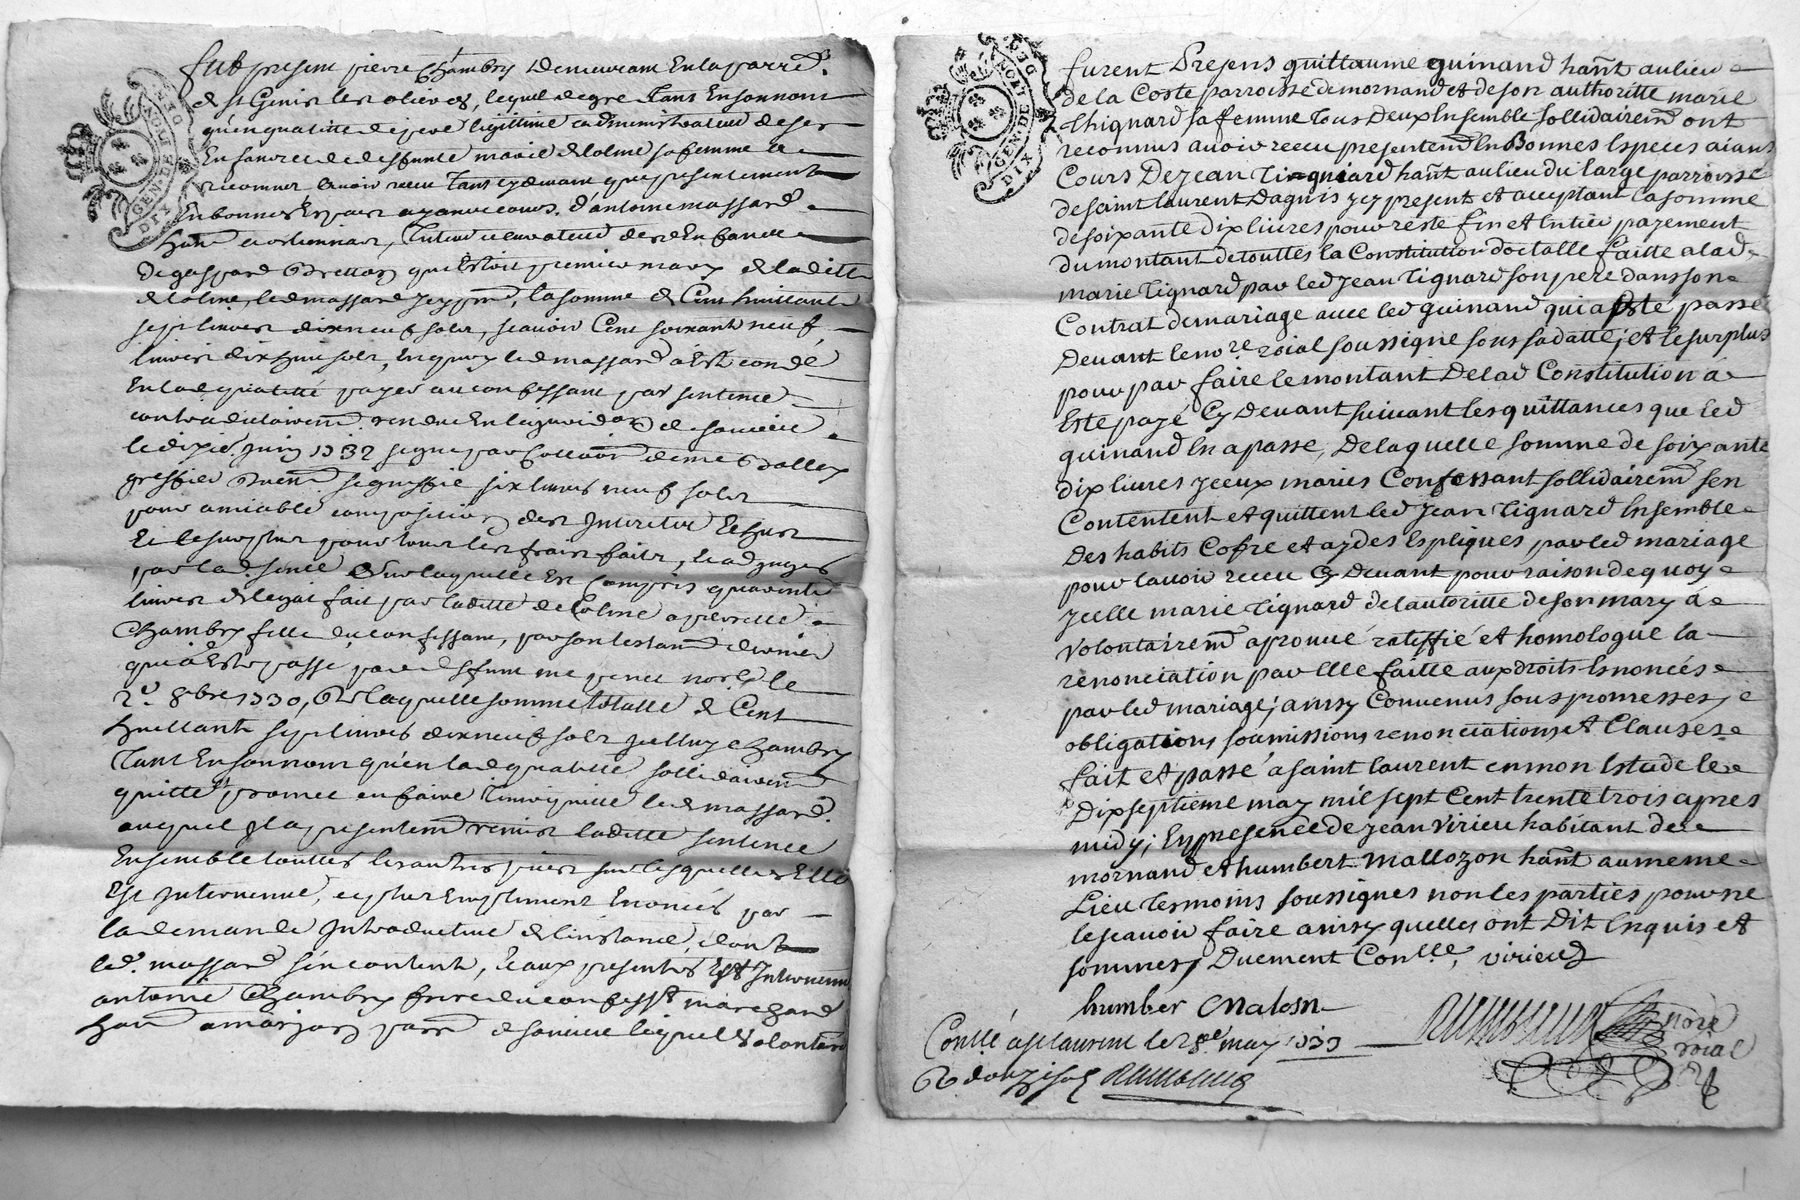 GEN. DE LYON. DIX DE.
fut present pierre Chambry demeurant En la parr.
de st Genis les olieres, lequel de gre tant En son nom
qu'en qualitte de pere legittime administrateur de ses
Enfans et de deffunte marie delolme sa femme a
reconnu avoir receu tant cy devant que presentement
En bonnes Especes ayant cours, d'antoine massard
tuteur curateur des Enfans
de gaspard que Estoit premier mary de laditte
delolme, led massard icy pnt, la somme de Cent huittante
sept livres dix neuf sols, scavoir Cent soixant neuf
livres dix huit sols, En quoy led massard à Esté condé
En lad qualitté payer au confessant par sentence
contradictoirem rendue En de
le dixie juin 1732 signe par de me
greffier signiffié six livres neuf sols
pour amiable composition des Interets
Et le surplus pour tous les frais faits, et adjuges
par lad snce Sur laquelle Est Compris quarente
livres de legat fait par laditte delolme a pierrette
Chambry fille du confessant, par son testam dernier
qui à Esté passé par deffunt me le
2e 8bre 1730, De laquelle somme totalle de Cent
huittante sept livres dix neuf sols jcelluy Chambry
Tant En son nom qu'en lad qualitte sollidairem
quitte promet en faire tenir quitte led massard
auquel Il a presentem remis laditte sentence
Ensemble touttes les autres pieces sur lesquelles Elle
Est Intervenue, et plus Emplement Enoncés par
la demande Introductive de l'instance, dont
led. massard s'en contente, Et aux presentes Est Intervenu
antoine Chambry frere du confesst marchand
hant a parr de lequel volontem
GEN. DE LYON. DIX DE.
furent Presens guillaume guinand hant au lieu
de la Coste parroisse de mornand et de son authoritte marie
thignard sa femme tous deux Ensemble sollidairem ont
reconnus avoir receu presentem En Bonnes Especes aiant
Cours De Jean Tignard hant au lieu du large parroisse
de saint laurent Dagnis jcy present et acceptant la somme
de soixante dix livres pour reste fin et Entier payement
du montant de touttes la Constitution doctalle faitte a lad
marie Tignard par led Jean Tignard son pere dans son
Contrat de mariage avec led guinand qui a Esté passé
Devant le nore roial soussigné sous sa datte; et le surplus
pour par faire le montant De lad Constitution à
Esté payé Cy Devant suivant les quittances que led
guinand En a passé, De laquelle somme de soixante
dix livres jceux mariés Confessant sollidairem sen
Contentent et quittent led Jean Tignard Ensemble
Des habits Cofre et aydes Expliqués par led mariage
pour lavoir receu Cy Devant pour raison de quoy
jcelle marie Tignard de lautoritté de son mary à
volontairem aprouvé ratiffié et homologué la
renonciation par Elle faitte aux droits Enoncés
par led mariage; ainsy Convenus sous promesses
obligations soumissions renonciations et Clauses
fait et passé a saint laurent en mon Estude le
Dix septieme may mil sept Cent trente trois apres
midy; En presence de Jean Virieu habitant de
mornand et humbert Mallozon hant au meme
Lieu temoins soussignes non les parties pour ne
le scavoir faire ainsy quelles ont Dit Enquis et
sommes, Duement Conlle, virieu
humber malosn
nore
roial
Conllé a st laurent le 28e may 1733